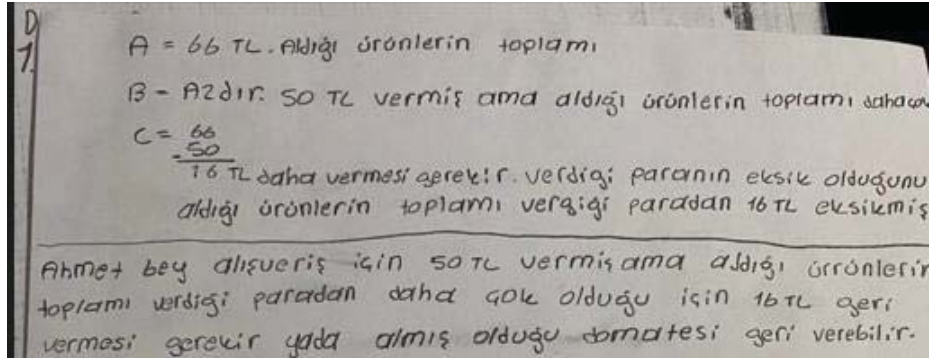 D
1.
A = 66 TL. Aldığı ürünlerin toplamı
B - Azdır. 50 TL vermiş ama aldığı ürünlerin toplamı daha çok
C = 66
- 50
16 TL daha vermesi gerekir. verdigi paranın eksik olduğunu
aldığı ürünlerin toplamı vergigi paradan 16 TL eksikmiş
Ahmet bey alışveriş için 50 TL vermiş ama aldığı ürrünlerin
toplamı verdigi paradan daha çok olduğu için 16 TL geri
vermesi gerekir yada almış olduğu domatesi geri verebilir.